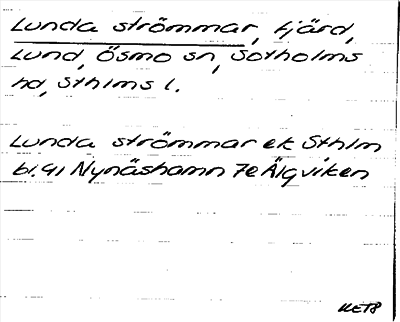 Lunda strömmar, fjärd,
Lund, Ösmo sn, Sotholms
hd, Sthlms l.
Lunda strömmar ek Sthlm
bl. 91 Nynäshamn 7e Älgviken